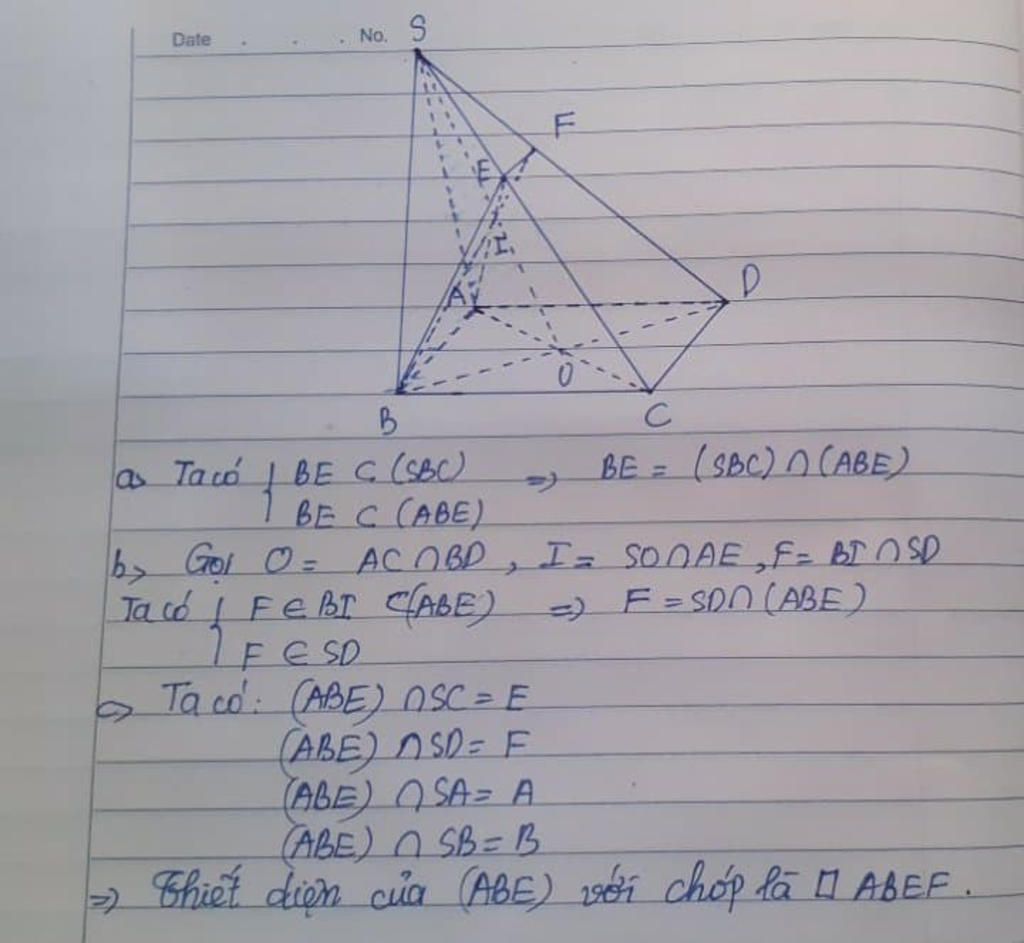 Date . . . No.
S
F
E
I
A
D
O
B
C
a, Ta có { BE ⊂ (SBC) => BE = (SBC) ∩ (ABE)
BE ⊂ (ABE)
b, Gọi O = AC ∩ BD, I = SO ∩ AE, F = BI ∩ SD
Ta có { F ∈ BI ⊂ (ABE) => F = SD ∩ (ABE)
F ∈ SD
c, Ta có: (ABE) ∩ SC = E
(ABE) ∩ SD = F
(ABE) ∩ SA = A
(ABE) ∩ SB = B
=> Thiết diện của (ABE) với chóp là □ ABEF.